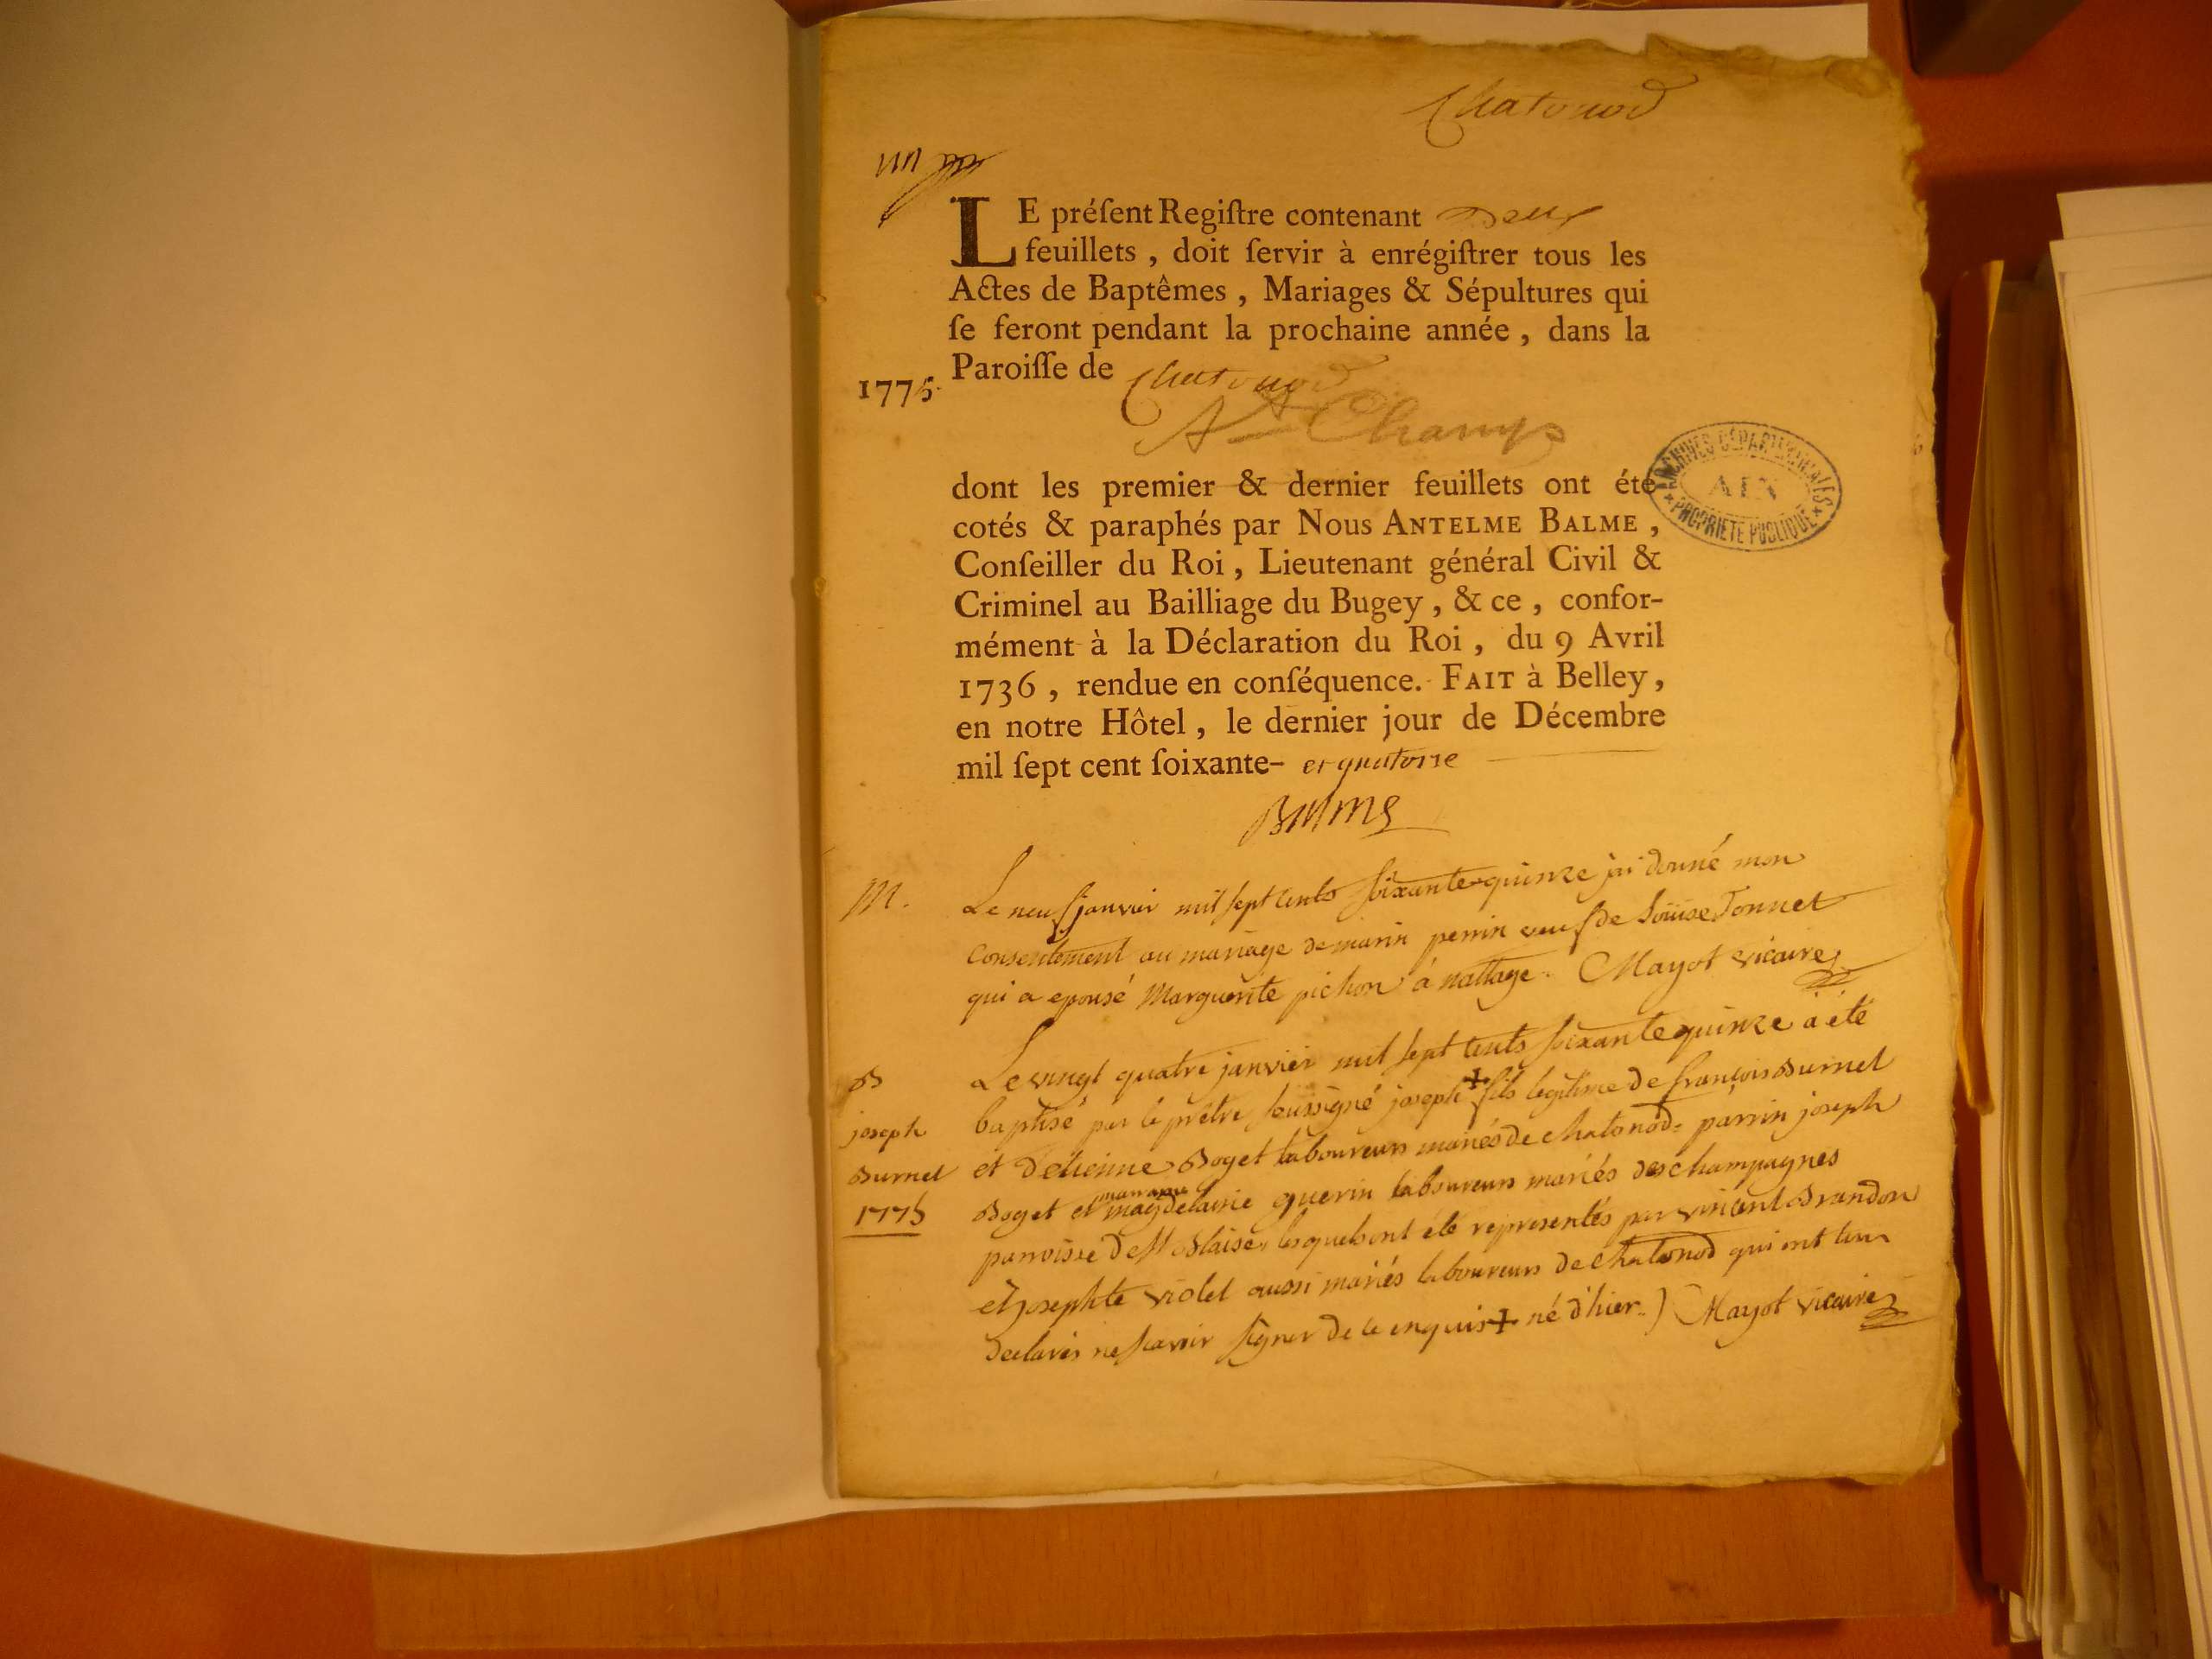 Chatonod
un
LE préſent Regiſtre contenant Deux
feuillets, doit ſervir à enrégiſtrer tous les
Actes de Baptêmes, Mariages & Sépultures qui
ſe feront pendant la prochaine année, dans la
Paroiſſe de Chatonod
1775.
A Champ
dont les premier & dernier feuillets ont été
cotés & paraphés par Nous ANTELME BALME,
Conſeiller du Roi, Lieutenant général Civil &
Criminel au Bailliage du Bugey, & ce, confor-
mément à la Déclaration du Roi, du 9 Avril
1736, rendue en conſéquence. FAIT à Belley,
en notre Hôtel, le dernier jour de Décembre
mil ſept cent ſoixante- et quatorze
ARCHIVES DÉPARTEMENTALES
AIN
PROPRIÉTÉ PUBLIQUE
Balme
M. Le neuf janvier mil sept cents soixante quinze jai donné mon
consentement au mariage de marin perrin veuf de Loüise Tonnet
qui a epousé Marguerite pichon à nattage. Mayot vicaire
B Le vingt quatre janvier mil sept cents soixante quinze a été
joseph baptisé par le prêtre soussigné joseph + fils legitime de françois Burnet
Burnet et d'etienne Boget laboureurs mariés de chatonod = parrin joseph
1775 Boget et marraine magdelaine guerin laboureurs mariés des champagnes
parroisse de St Blaise, lesquels ont été representés par vincent Brandon
et josephte violet aussi mariés laboureurs de chatonod qui ont
declarés ne scavoir signer de ce enquis + né d'hier.) Mayot vicaire